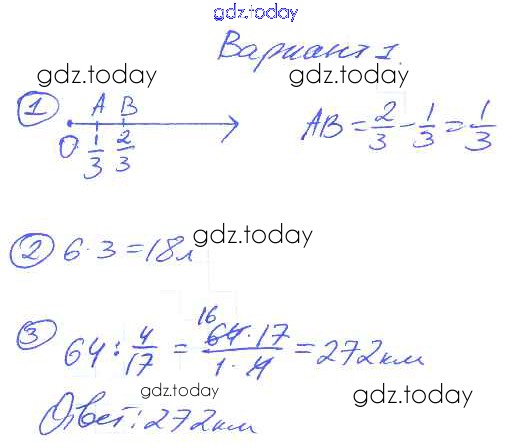 gdz.today
Вариант 1.
gdz.today gdz.today
1 A B
0 1/3 2/3 AB = 2/3 - 1/3 = 1/3
gdz.today
2 6 · 3 = 18л
3 64 : 4/17 = 16 64·17/1·4 = 272км
gdz.today gdz.today
Ответ: 272км